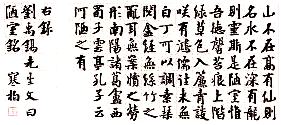 山不在高有仙則
名水不在深有龍
則靈斯是陋室惟
吾德馨苔痕上階
綠草色入簾青談
咲有鴻儒往來無
白丁可以調素琴
閱金經無絲竹之
亂耳無案牘之勞
形南陽諸葛盧西
蜀子雲亭孔子云
何陋之有
右錄
劉禹錫先生文曰
陋室銘